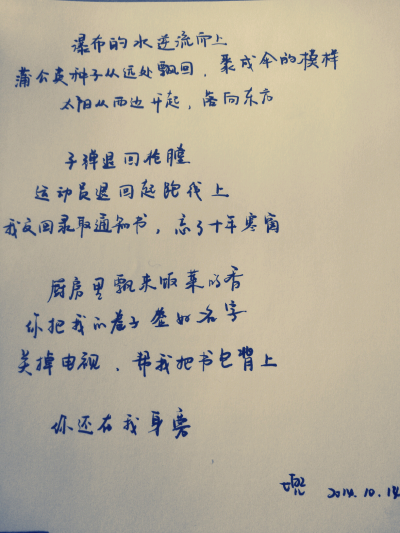 瀑布的水逆流而上
蒲公英种子从远处飘回，聚成伞的模样
太阳从西边升起，落向东方
子弹退回枪膛
运动员退回起跑线上
我交回录取通知书，忘了十年寒窗
厨房里飘来饭菜的香
你把我的卷子签好名字
关掉电视，帮我把书包背上
你还在我身旁
2014.10.14